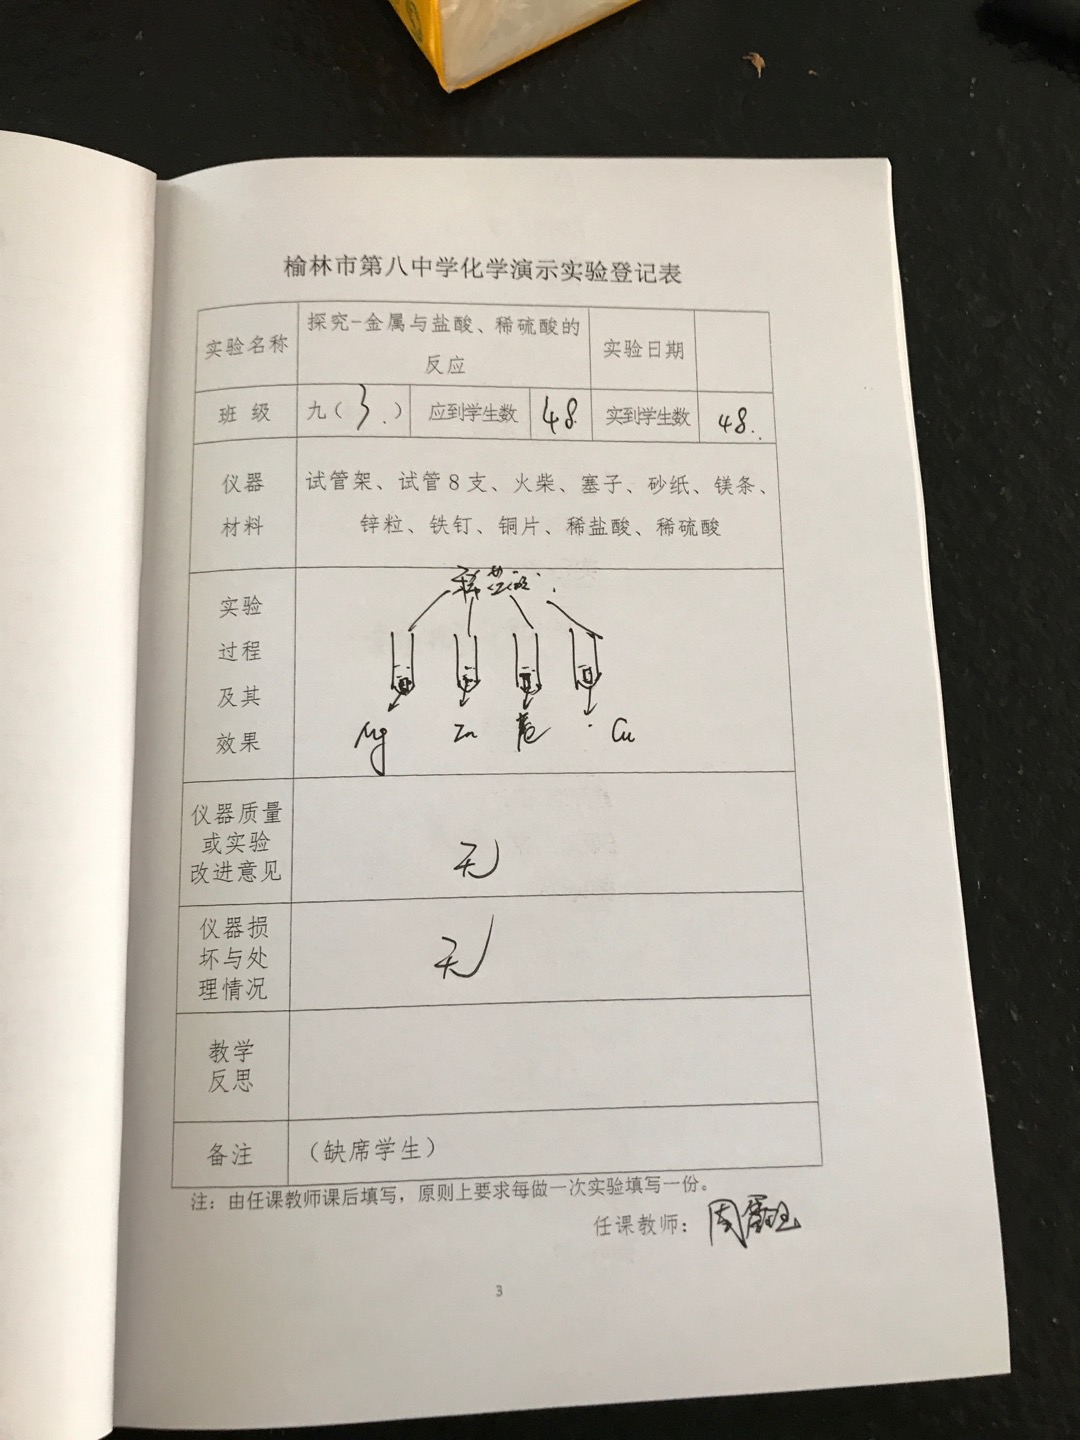 榆林市第八中学化学演示实验登记表
实验名称
探究-金属与盐酸、稀硫酸的
反应
实验日期
班 级
九（3.）
应到学生数
48.
实到学生数
48..
仪器
材料
试管架、试管8支、火柴、塞子、砂纸、镁条、
锌粒、铁钉、铜片、稀盐酸、稀硫酸
实验
过程
及其
效果
稀盐酸
Mg
Zn
Cu
仪器质量
或实验
改进意见
无
仪器损
坏与处
理情况
无
教学
反思
备注
（缺席学生）
注：由任课教师课后填写，原则上要求每做一次实验填写一份。
任课教师：周
3